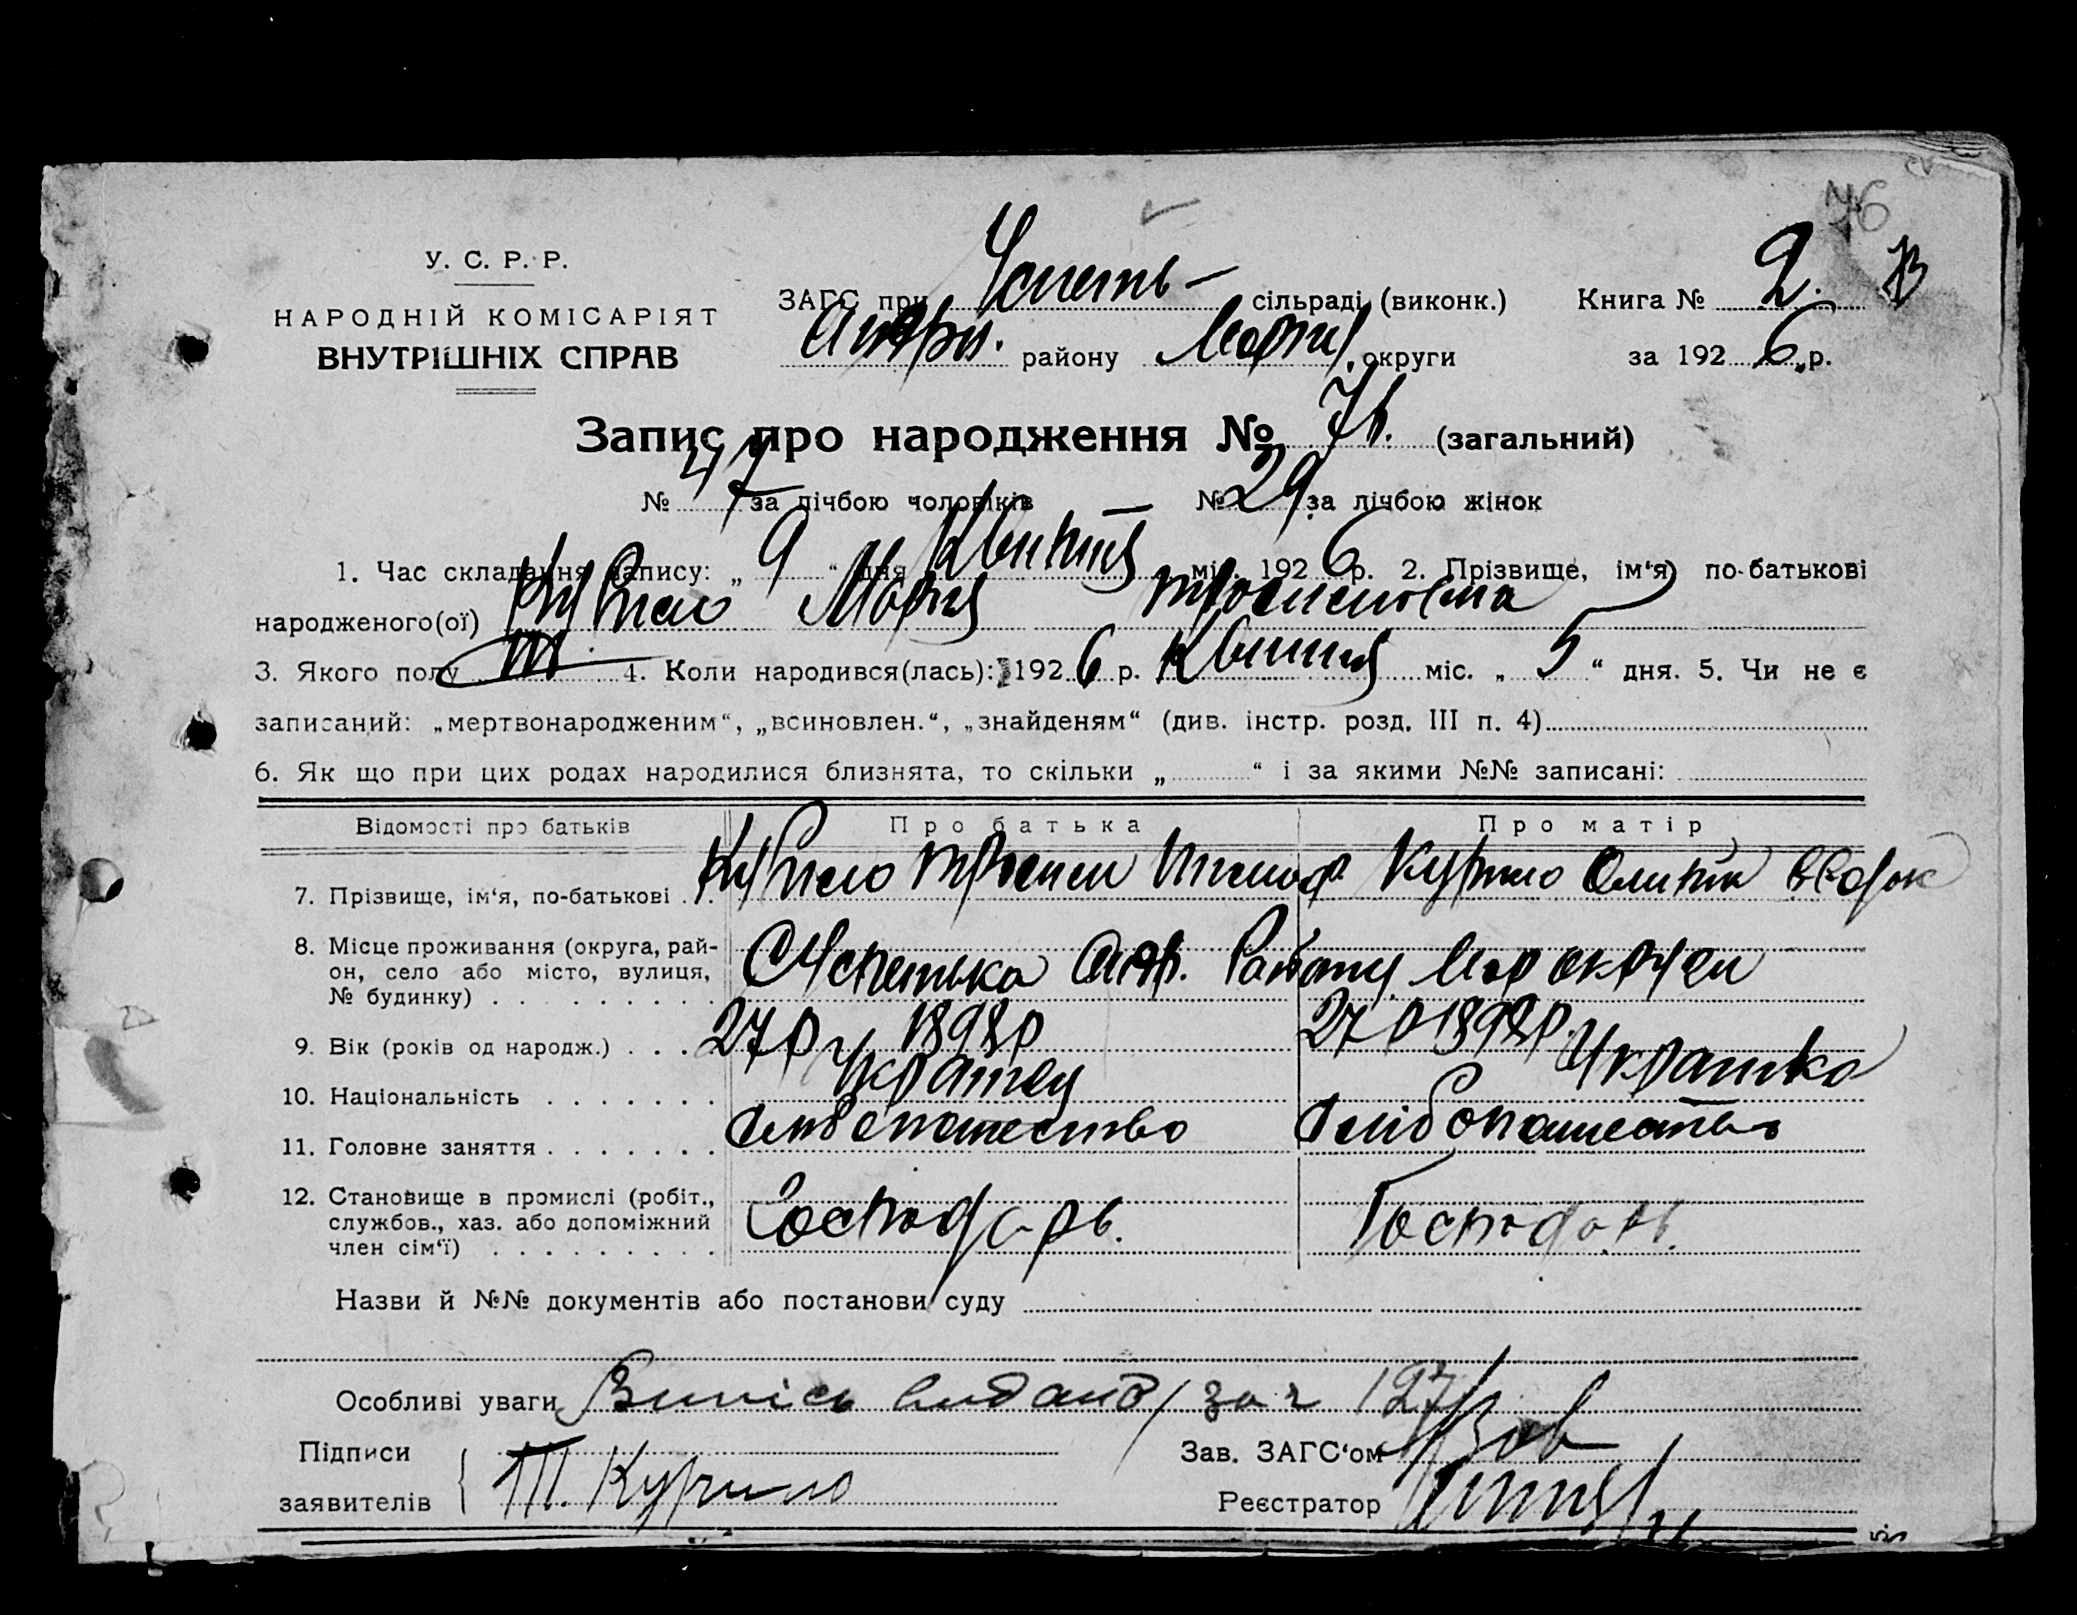 76
У. С. Р. Р.
НАРОДНІЙ КОМІСАРІЯТ
ВНУТРІШНІХ СПРАВ
ЗАГС при Успеть- сільраді (виконк.) Книга № 2.
Андр. району Марі округи за 192 6 р.
Запис про народження № 76. (загальний)
№ 47 за лічбою чоловіків № 29 за лічбою жінок
1. Час складання запису: „ 9 “ дня Квитня міс. 192 6 р. 2. Прізвище, ім‘я, по-батькові
народженого(ої) Курило Мария
3. Якого полу 4. Коли народився(лась): 192 6 р. Квитня міс. „ 5 “ дня. 5. Чи не є
записаний: „мертвонародженим“, „всиновлен.“, „знайденям“ (див. інстр. розд. III п. 4)
6. Як що при цих родах народилися близнята, то скільки „ “ і за якими №№ записані:
Відомості про батьків Про батька Про матір
7. Прізвище, ім‘я, по-батькові . . Курило Курило
8. Місце проживання (округа, рай-
он, село або місто, вулиця,
№ будинку) . . . . . . . . . .
Району Мар округи
9. Вік (років од народж.) . . . 27 р 1898р 27 р 1898р.
10. Національність . . . . . . . Украінец Украинка
11. Головне заняття . . . . . . . хлибопашество хлибопашество
12. Становище в промислі (робіт.,
службов., хаз. або допоміжний
член сім‘ї) . . . . . . . . . .
Господарь. Господарь.
Назви й №№ документів або постанови суду
Особливі уваги Випісь видано за № 127
Підписи
заявителів Т. Курило
Зав. ЗАГС‘ом
Реєстратор